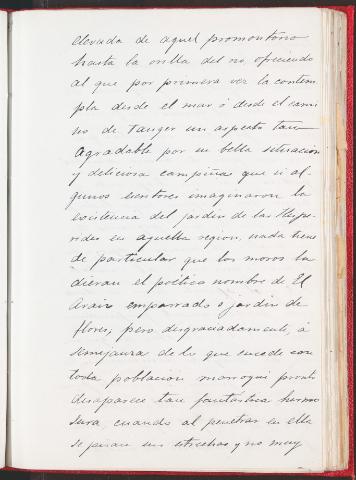 elevada de aquel promontorio
hasta la orilla del rio, ofreciendo
al que por primera vez la contem
pla desde el mar ó desde el cami
no de Tanger un aspecto tan
agradable por su bella situacion
y deliciosa campiña que si al-
gunos escritores imaginaron la
existencia del jardin de las Hespe-
rides en aquella region, nada tiene
de particular que los moros la
dieran el poético nombre de El
Araix emparrado o jardin de
flores, pero desgraciadamente, á
semejanza de lo que sucede con
toda poblacion marroqui pronto
desaparece tan fantástica hermo
sura, cuando al penetrar en ella
se pisan sus estrechas y no muy